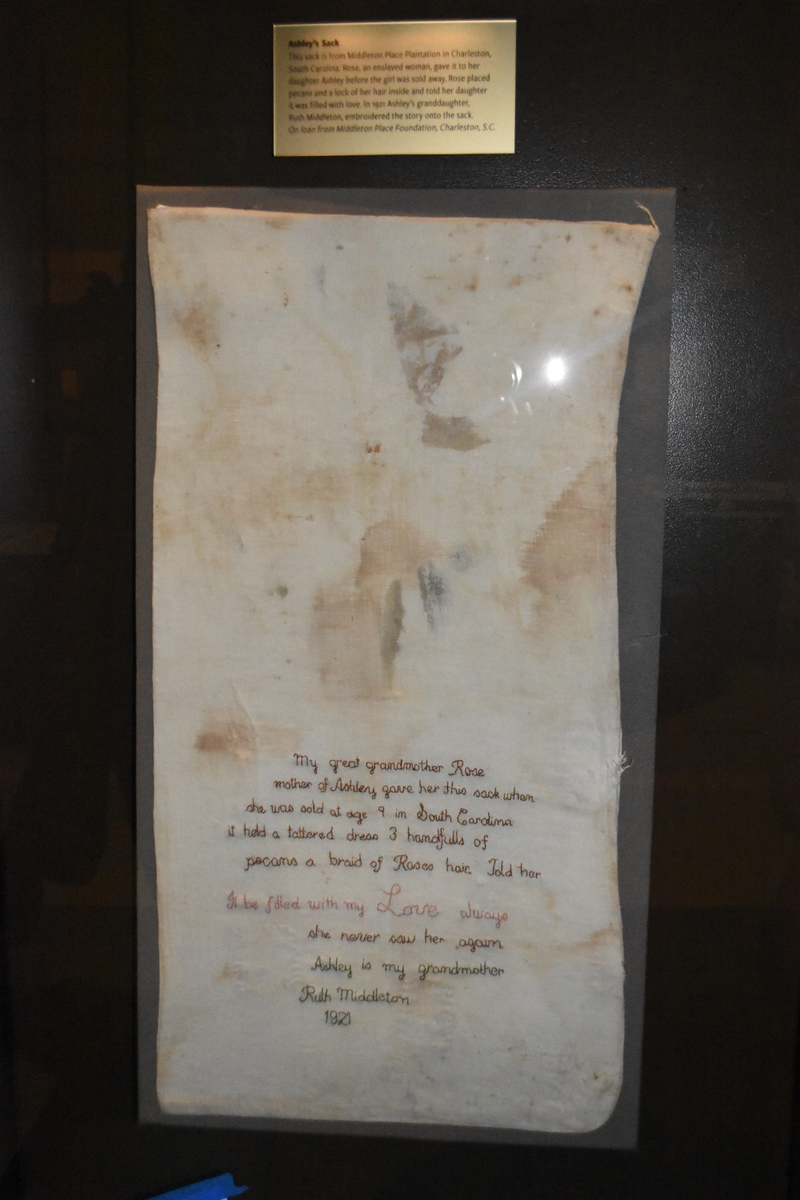 Ashley's Sack
This sack is from Middleton Place Plantation in Charleston,
South Carolina. Rose, an enslaved woman, gave it to her
daughter Ashley before the girl was sold away. Rose placed
pecans and a lock of her hair inside and told her daughter
it was filled with love. In 1921 Ashley's granddaughter,
Ruth Middleton, embroidered the story onto the sack.
On loan from Middleton Place Foundation, Charleston, S.C.
My great grandmother Rose
mother of Ashley gave her this sack when
she was sold at age 9 in South Carolina
it held a tattered dress 3 handfulls of
pecans a braid of Roses hair. Told her
It be filled with my Love always
she never saw her again
Ashley is my grandmother
Ruth Middleton
1921